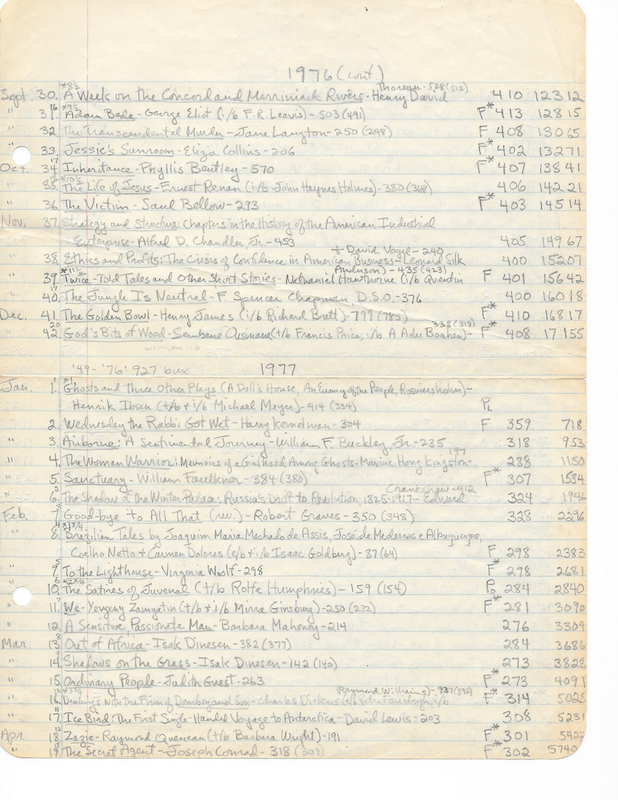 1976 (cont.)
Thoreau - 528 (512)
Sept. 30. A Week on the Concord and Merrimack Rivers - Henry David 410 12312
" 31. Adam Bede - George Eliot (i/b F.R. Leavis) - 503 (491) F* 413 12815
" 32. The Transcendental Murder - Jane Langton - 250 (248) F 408 13065
" 33. Jessie's Sunroom - Eliza Collins - 206 F* 402 13271
Oct. 34. Inheritance - Phyllis Bentley - 570 F* 407 13841
" 35. The Life of Jesus - Ernest Renan (i/b John Haynes Holmes) - 380 (368) 406 14221
" 36. The Victim - Saul Bellow - 293 F* 403 14514
Nov. 37. Strategy and Structure: Chapters in the History of the American Industrial
Enterprise - Alfred D. Chandler, Jr. - 453 405 14967
+ David Vogel - 240
" 38. Ethics and Profits: The Crisis of Confidence in American Business - Leonard Silk 400 15207
Anderson) - 435 (423)
" 39. Twice-Told Tales and Other Short Stories - Nathaniel Hawthorne (i/b Quentin F 401 15642
" 40. The Jungle Is Neutral - F. Spencer Chapman, D.S.O. - 376 400 16018
Dec. 41. The Golden Bowl - Henry James (i/b Richard Brett) - 799 (785) F* 410 16817
338 (318)
" 42. God's Bits of Wood - Sembene Ousmane (t/b Francis Price, i/b A Adu Boahen) - F* 408 17155
'49 - '76 927 bux 1977
Jan. 1. Ghosts and Three Other Plays (A Doll's House, An Enemy of the People, Rosmersholm) -
Henrik Ibsen (t/b + i/b Michael Meyer) - 414 (334) PL
" 2. Wednesday the Rabbi Got Wet - Harry Kemelman - 304 F 359 718
" 3. Airborne: A Sentimental Journey - William F. Buckley Jr. - 235 318 953
" 4. The Woman Warrior: Memoirs of a Girlhood Among Ghosts - Maxine Hong Kingston - 197 288 1150
" 5. Sanctuary - William Faulkner - 384 (380) F* 307 1534
Crankshaw - 412
" 6. The Shadow of the Winter Palace: Russia's Drift to Revolution, 1825-1917 - Edward 324 1946
Feb. 7. Good-bye to All That (rev.) - Robert Graves - 350 (348) 328 2296
" 8. Brazilian Tales by Joaquim Maria Machado de Assis, José de Medeiros e Albuquerque,
Coelho Netto + Carmen Dolores (e/b + i/b Isaac Goldberg) - 87 (64) F* 298 2383
" 9. To the Lighthouse - Virginia Woolf - 298 F* 298 2681
" 10. The Satires of Juvenal (t/b Rolfe Humphries) - 159 (154) Po* 284 2840
" 11. We - Yevgeny Zamyatin (t/b + i/b Mirra Ginsburg) - 250 (232) F* 281 3090
" 12. A Sensitive, Passionate Man - Barbara Mahoney - 219 276 3309
Mar. 13. Out of Africa - Isak Dinesen - 382 (377) 284 3686
" 14. Shadows on the Grass - Isak Dinesen - 142 (140) 273 3828
" 15. Ordinary People - Judith Guest - 263 F* 273 4091
(Raymond Williams) - 937 (892)
" 16. Dealings with the Firm of Dombey and Son - Charles Dickens F* 314 5028
" 17. Ice Bird: The First Single-Handed Voyage to Antarctica - David Lewis - 203 308 5231
Apr. 18. Zazie - Raymond Queneau (t/b Barbara Wright) - 191 F* 301 5422
" 19. The Secret Agent - Joseph Conrad - 318 (309) F* 302 5740